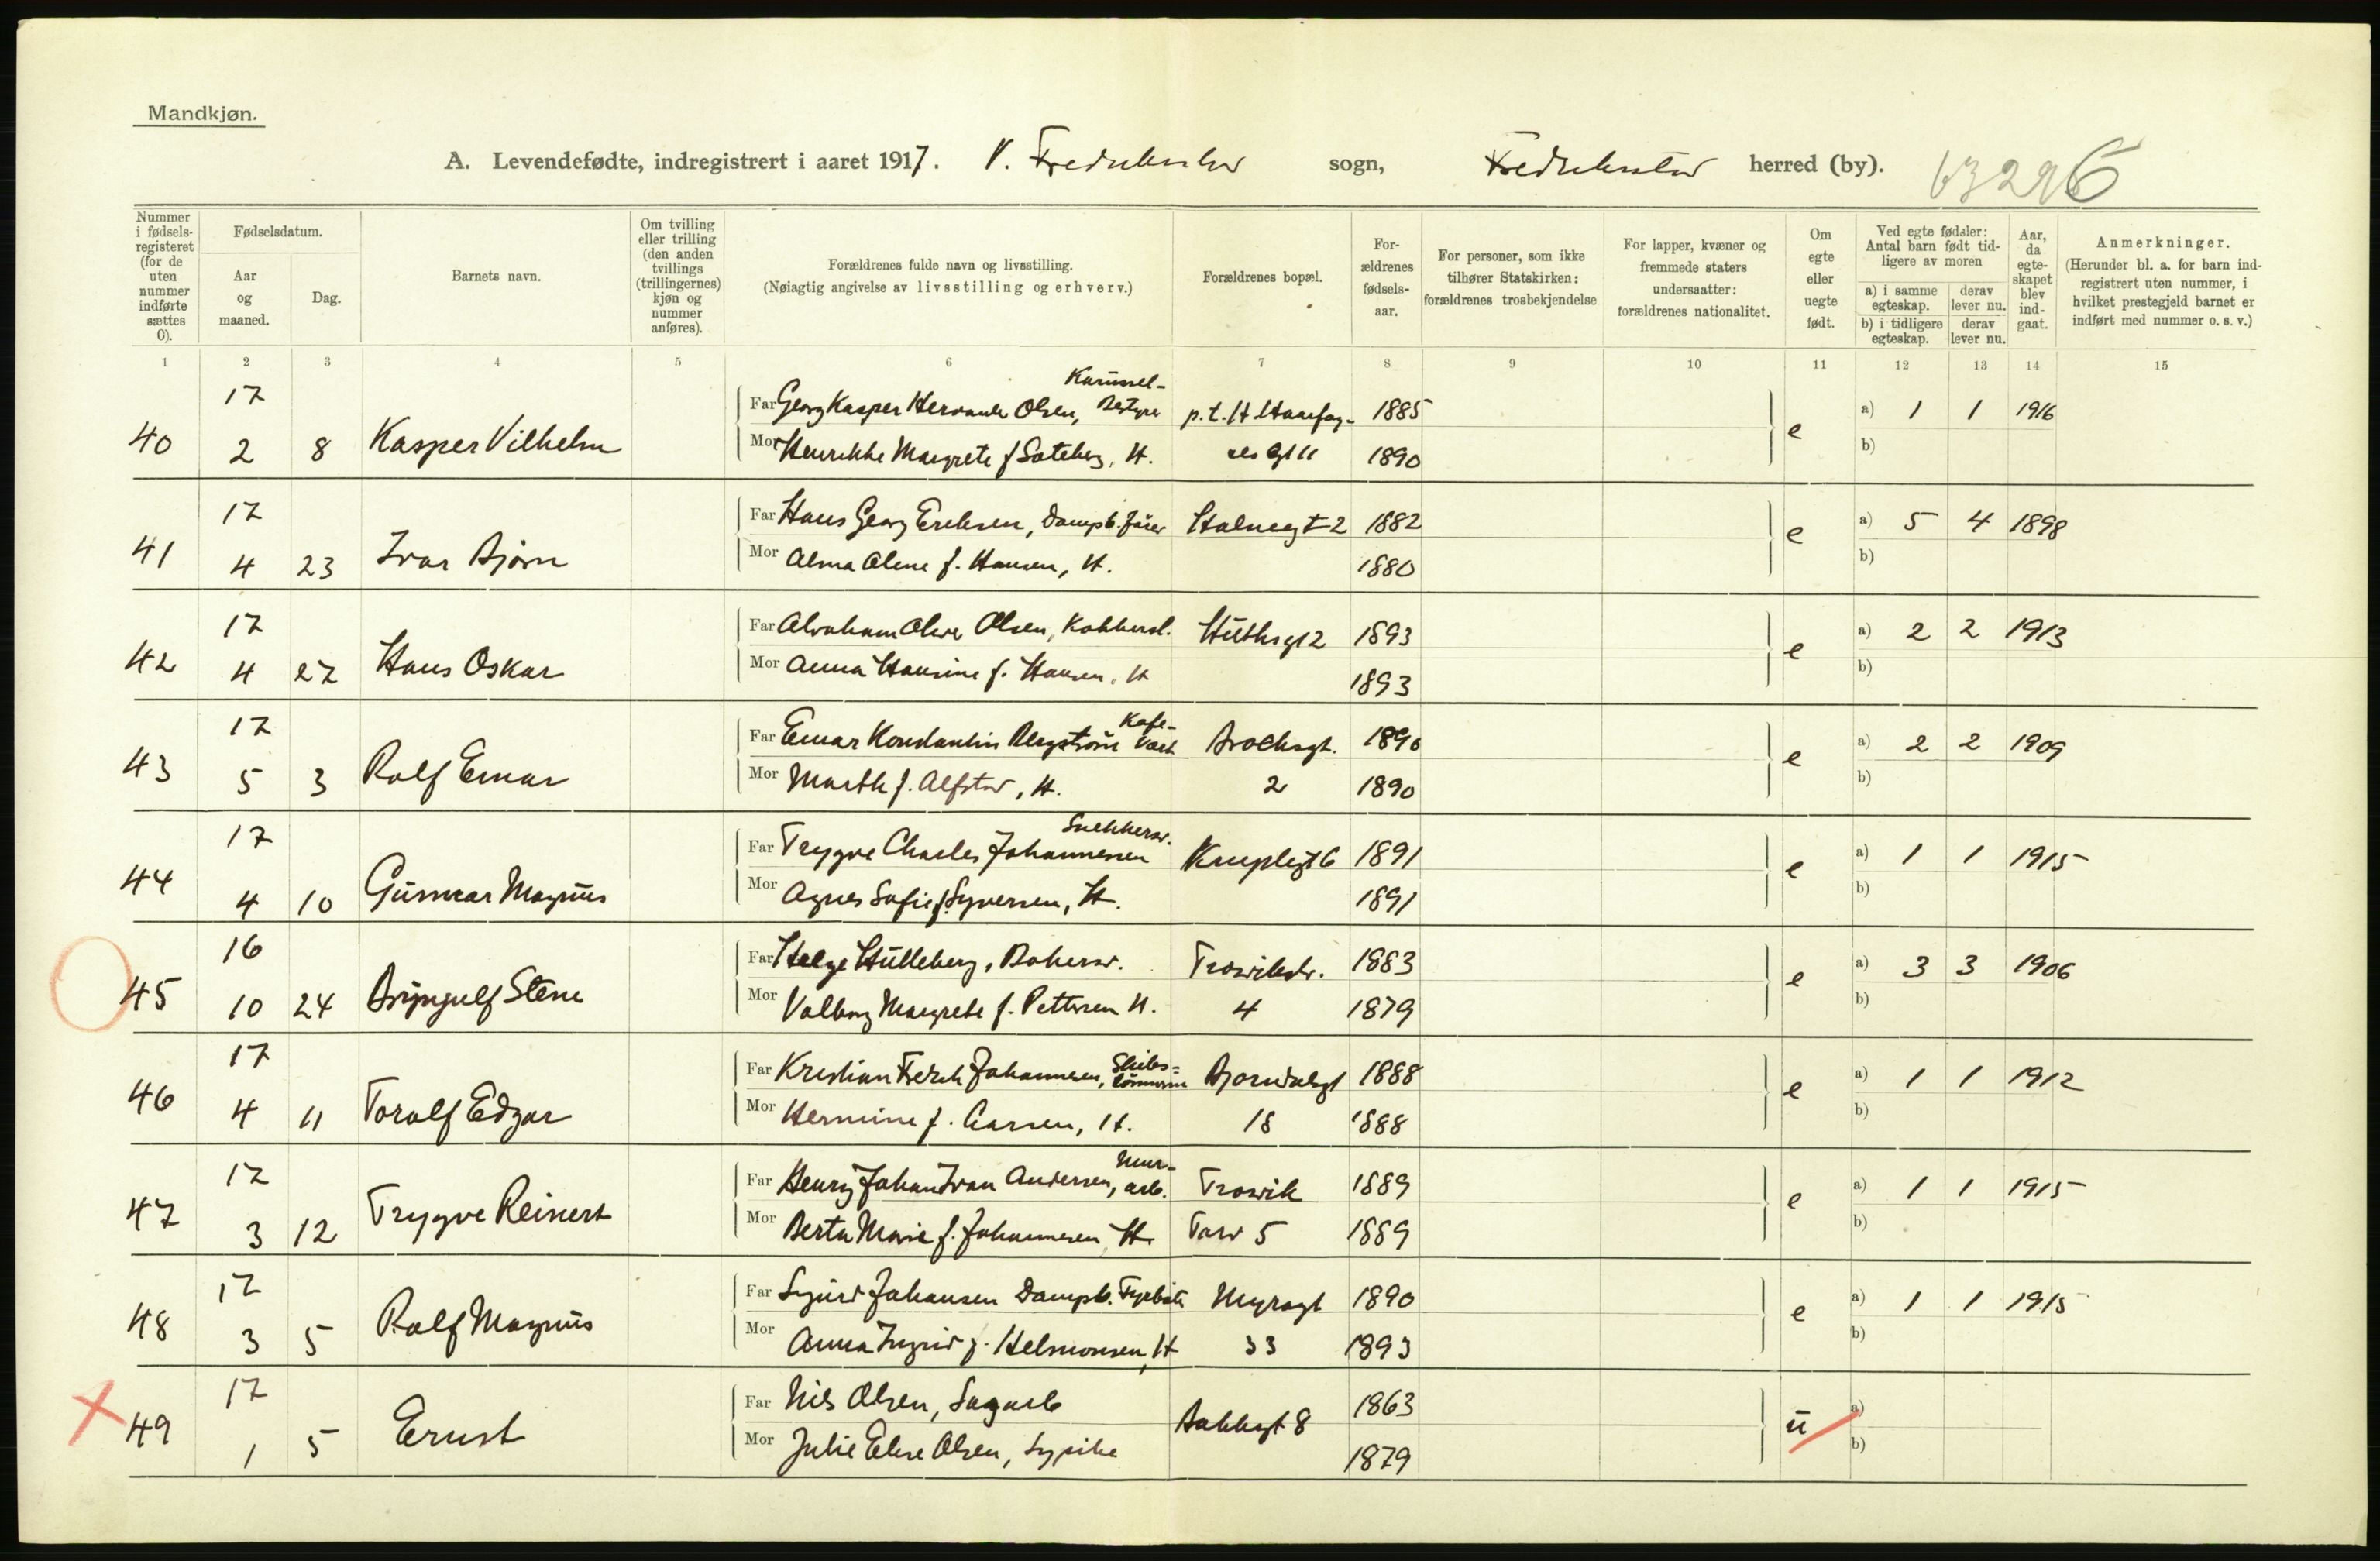 Mandkjøn.
A. Levendefødte, indregistrert i aaret 1917. V. sogn, herred (by).
Nummer i fødsels-registeret (for de uten nummer indførte sættes 0).
Fødselsdatum.
Aar og maaned.
Dag.
Barnets navn.
Om tvilling eller trilling (den anden tvillings (trillingernes) kjøn og nummer anføres).
Forældrenes fulde navn og livsstilling.
(Nøiagtig angivelse av livsstilling og erhverv.)
Forældrenes bopæl.
For-ældrenes fødsels-aar.
For personer, som ikke tilhører Statskirken: forældrenes trosbekjendelse
For lapper, kvæner og fremmede staters undersaatter: forældrenes nationalitet.
Om egte eller uegte født.
Ved egte fødsler: Antal barn født tid-ligere av moren
a) i samme egteskap.
derav lever nu.
b) i tidligere egteskap.
derav lever nu.
Aar, da egte-skapet blev ind-gaat.
Anmerkninger.
(Herunder bl. a. for barn ind-registrert uten nummer, i hvilket prestegjeld barnet er indført med nummer o. s. v.)
1 2 3 4 5 6 7 8 9 10 11 12 13 14 15
17 Karussel-
Far Georg Kasper Olsen, Bestyrer p.t. H. 1885 a) 1 1 1916
40 2 8 Kasper Vilhelm e
Mor Margrete f. H. 1890 b)
17 Far Hans Georg Eriksen, Dampb.fører 2 1882 a) 5 4 1898
41 4 23 Ivar Bjørn e
Mor Alma Oline f. Hansen, H. 1880 b)
17 Far Olsen, 2 1893 a) 2 2 1913
42 4 27 Hans Oskar e
Mor Anna Hansine f. Hansen, H 1893 b)
17 Kafe-
Far Einar Konstantin Bergstrøm vert Brochsgt. 1890 a) 2 2 1909
43 5 3 Rolf Einar e
Mor f. Alfstad, H. 2 1890 b)
17 Snekkersv.
Far Trygve Charles Johannessen 6 1891 a) 1 1 1915
44 4 10 Gunnar Magnus e
Mor Agnes Sofie f. Syversen, H. 1891 b)
16 Far Helge Hulleberg, Bakersv. Trosvikstr. 1883 a) 3 3 1906
45 10 24 Brynjulf Stene e
Mor Valborg Margrete f. Pettersen H. 4 1879 b)
17 Far Kristian Fredrik Johannesen, Skibs=tømmerm 1888 a) 1 1 1912
46 4 11 Toralf Edgar e
Mor Hermine f. Larsen, H. 18 1888 b)
17 Mur-
Far Henry Johan Ivan Andersen, arb. Trosvik 1889 a) 1 1 1915
47 3 12 Trygve Reinert e
Mor Berta Marie f. Johannesen H. 5 1889 b)
17 Far Sigurd Johansen Dampb. Fyrbøter Myragt 1890 a) 1 1 1915
48 3 5 Rolf Magnus e
Mor Anna Ingrid f. Helmonsen, H 33 1893 b)
17 Far Nils Olsen, Sagarb 1863 a)
49 1 5 Ernst Bakkegt 8 u
Mor Julie Olsen, Sypike 1879 b)